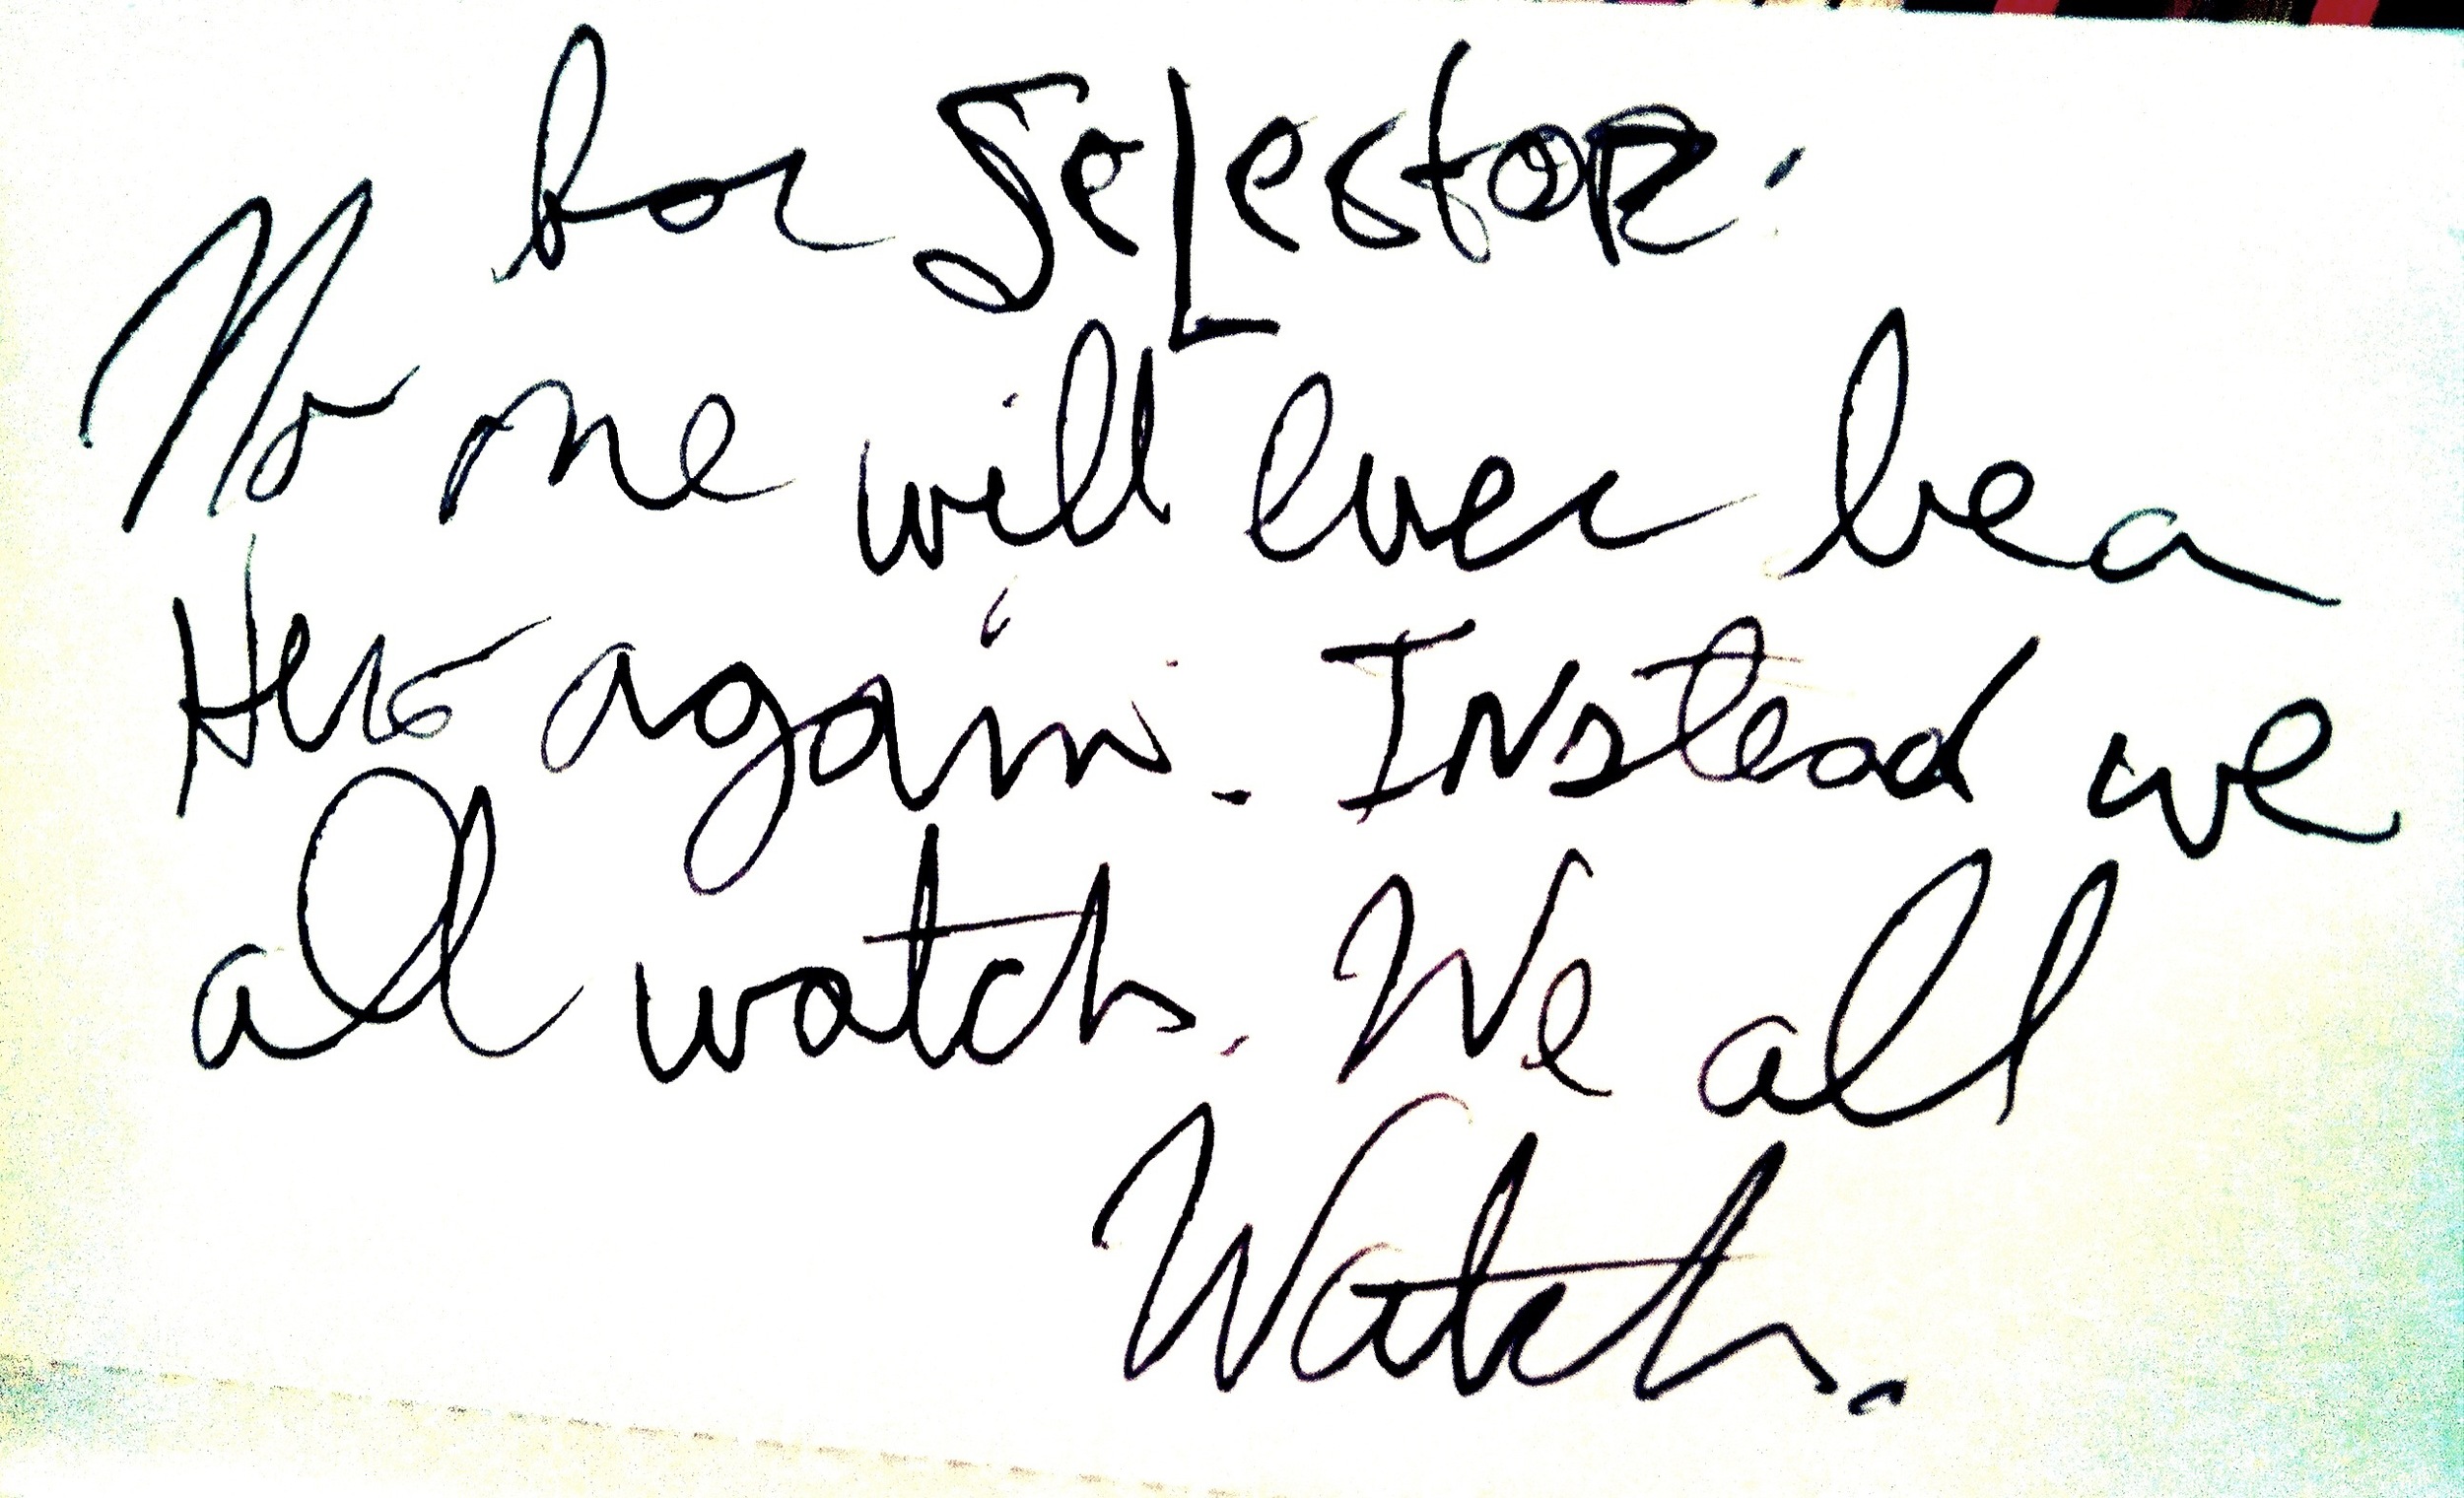 for Selestor.
No one will ever be a
Hero again. Instead we
all watch. We all
Watch.